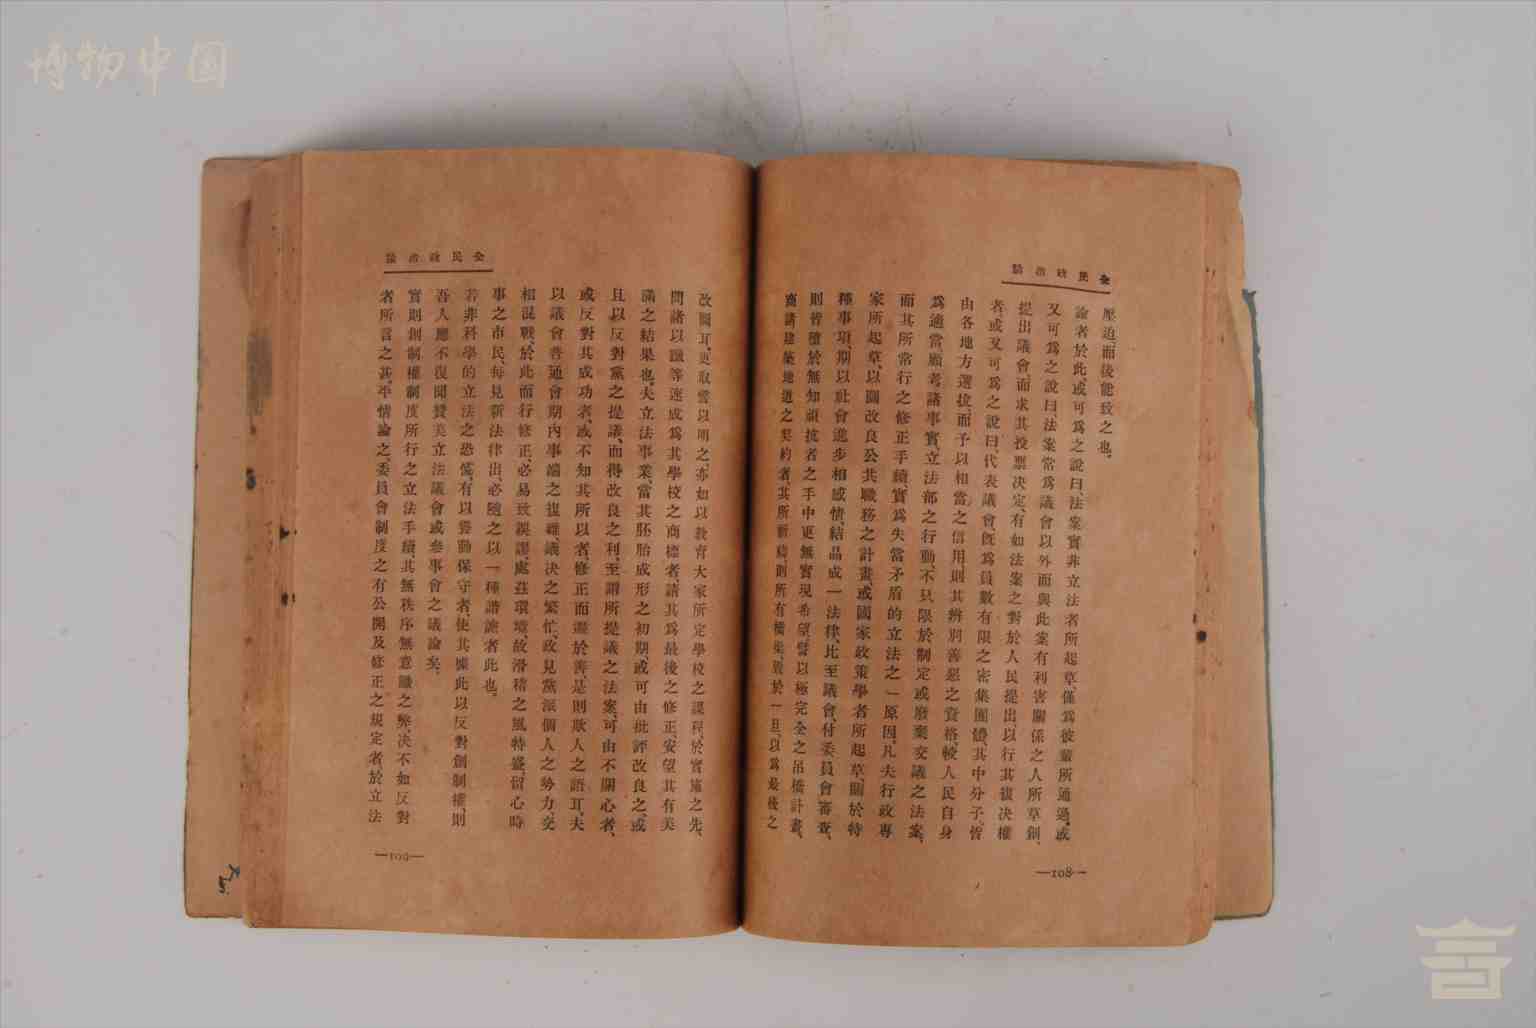 博物中国
全民政治論
壓迫,而後能致之也。
論者於此或可爲之說曰,法案實非立法者所起草,僅爲彼輩所通過,或
又可爲之說曰,法案常爲議會以外而與此案有利害關係之人所草創,
提出議會,而求其投票决定,有如法案之對於人民提出,以行其複决權
者,或又可爲之說曰,代表議會旣爲員數有限之密集團體,其中分子,皆
由各地方選拔,而予以相當之信用,則其辨別善惡之資格較人民自身
爲適當,顧考諸事實,立法部之行動,不只限於制定或廢棄交議之法案,
而其所常行之修正手續,實爲失當矛盾的立法之一原因,凡夫行政專
家所起草,以圖改良公共職務之計畫,或國家政策學者所起草,關於特
種事項,期以社會進步相感情,結晶成一法律,比至議會,付委員會審查,
則皆積於無知頑抗者之手中,更無實現希望,譬以極完全之吊橋計畫,
商諸建築地道之契約者,其所斷
則所有橋梁,毀於一旦,以爲最後之
—108—
全民政治論
改圖耳,更取譬以明之,亦如以教育大家所定學校之課程,於實施之先,
問諸以讖等速成爲其學校之商標者,請其爲最後之修正,安望其有美
滿之結果也,夫立法事業,當其胚胎成形之初期,或可由批評改良之,或
且以反對黨之提議,而得改良之利,至謂所提議之法案,可由不關心者,
或反對其成功者,或不知其所以者,修正而進於善,是則欺人之語耳,夫
以議會普通會期內事端之複雜,議决之繁忙,政見黨派個人之勢力,交
相混戰,於此而行修正,必易致誤謬,處茲環境,故滑稽之風特盛,留心時
事之市民,每見新法律出,必隨之以一種諧謔者此也。
若非科學的立法之恐怖,有以聳動保守者,使其據此以反對創制權,則
吾人應不復聞贊美立法議會或參事會之議論矣,
實則創制權制度所行之立法手續,其無秩序無意識之弊,决不如反對
者所言之甚,平情論之,委員會制度之有公開及修正之規定者,於立法
—109—